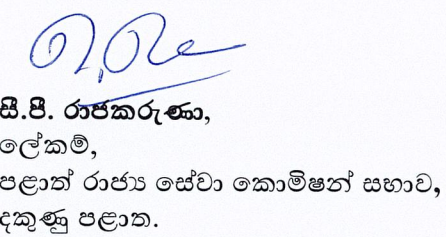 සී.පී. රාජකරුණා,
ලේකම්,
පළාත් රාජ්‍ය සේවා කොමිෂන් සභාව,
දකුණු පළාත.